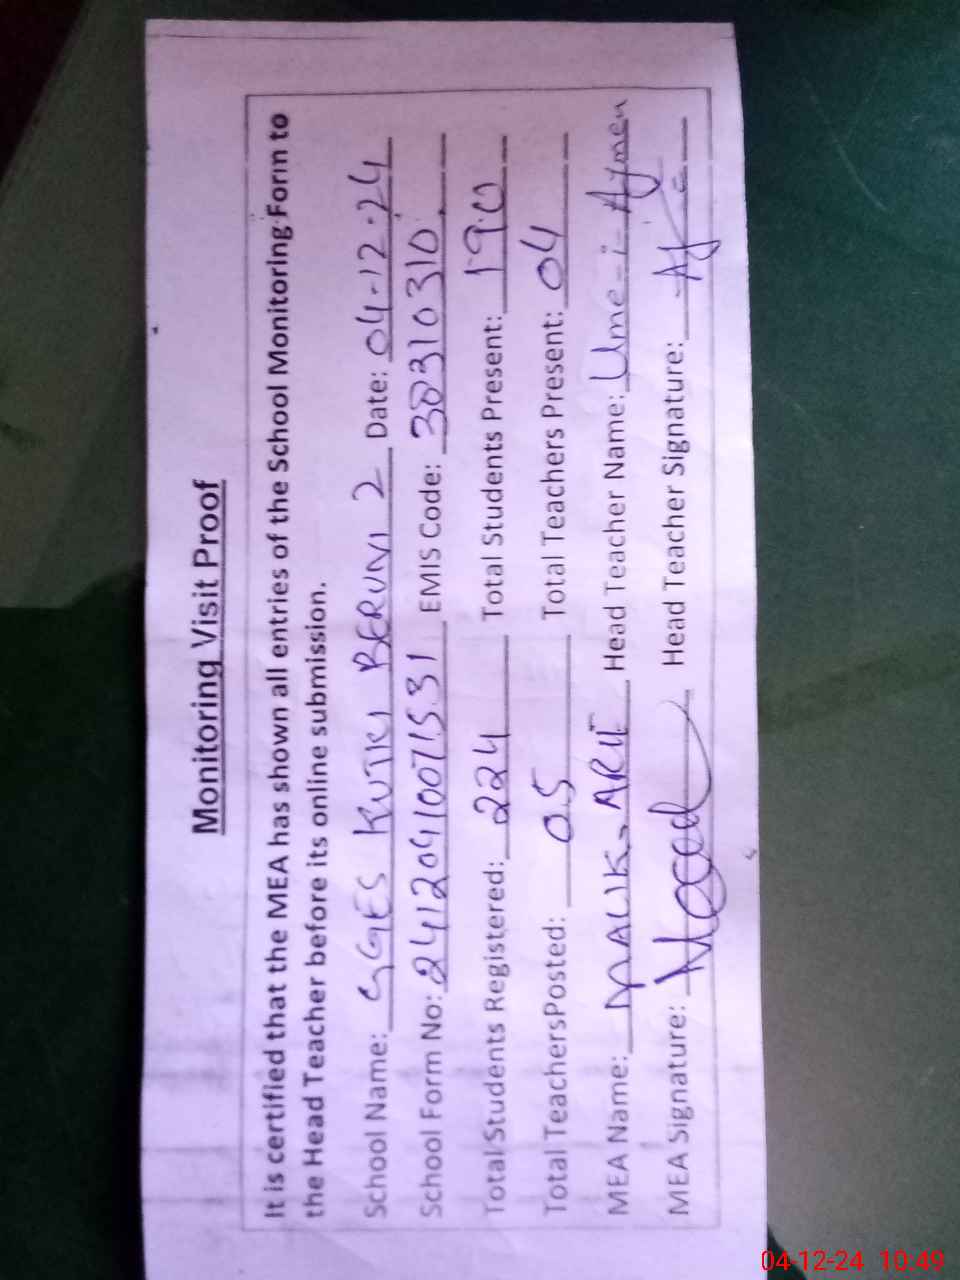 Monitoring Visit Proof
It is certified that the MEA has shown all entries of the School Monitoring Form to
the Head Teacher before its online submission.
School Name: GGES KUTKI BERUNI 2 Date: 04-12-24
School Form No: 24120410071531 EMIS Code: 38310310
Total Students Registered: 224 Total Students Present: 190
Total Teachers Posted: 05 Total Teachers Present: 04
MEA Name: MALIK-ARIF Head Teacher Name: Ume-i-Aymen
MEA Signature: Head Teacher Signature:
04-12-24 10:49